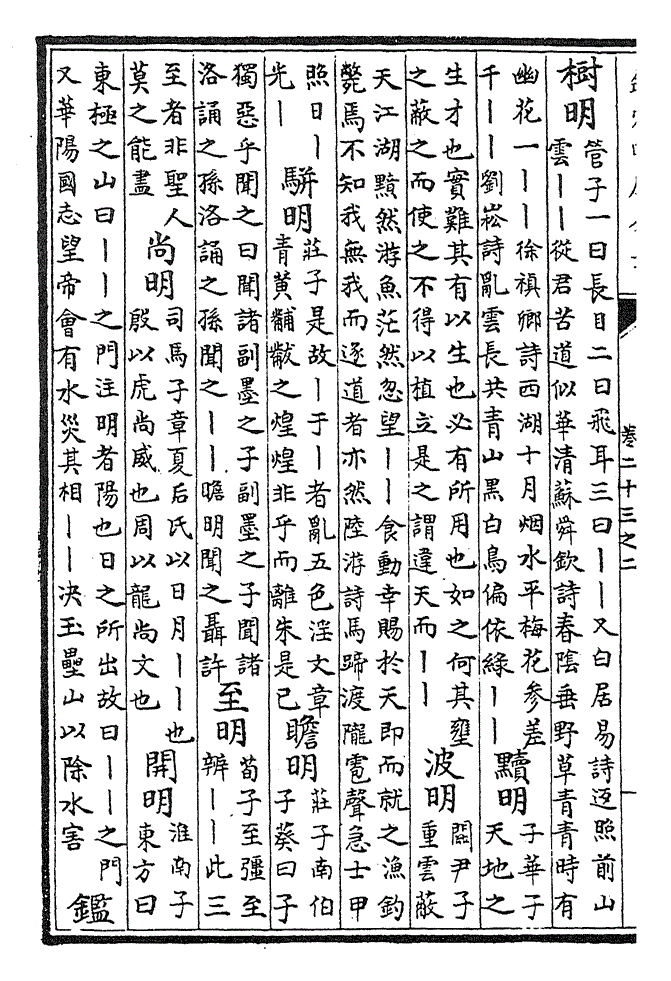 卷二十三之二
樹明
管子一曰長目二曰飛耳三曰丨丨又白居易詩返照前山
雲丨丨從君苦道似華清蘇舜欽詩春陰垂野草青青時有
幽花一丨丨徐禎卿詩西湖十月烟水平梅花參差
千丨丨劉崧詩亂雲長共青山黑白鳥偏依綠丨丨
黷明
子華子
天地之
生才也實難其有以生也必有所用也如之何其壅
之蔽之而使之不得以植立是之謂違天而丨丨
波明
關尹子
重雲蔽
天江湖黯然游魚茫然忽望丨丨食動幸賜於天即而就之漁釣
斃焉不知我無我而逐道者亦然陸游詩馬蹄渡隴雹聲急士甲
照日丨
光丨
駢明
莊子是故丨于丨者亂五色淫文章
青黃黼黻之煌煌非乎而離朱是已
瞻明
莊子南伯
子葵曰子
獨惡乎聞之曰聞諸副墨之子副墨之子聞諸
洛誦之孫洛誦之孫聞之丨丨瞻明聞之聶許
至明
荀子至彊至
辨丨丨此三
至者非聖人
莫之能盡
尚明
司馬子章夏后氏以日月丨丨也
殷以虎尚威也周以龍尚文也
開明
淮南子
東方曰
東極之山曰丨丨之門注明者陽也日之所出故曰丨丨之門
又華陽國志望帝會有水災其相丨丨决玉壘山以除水害
鑑